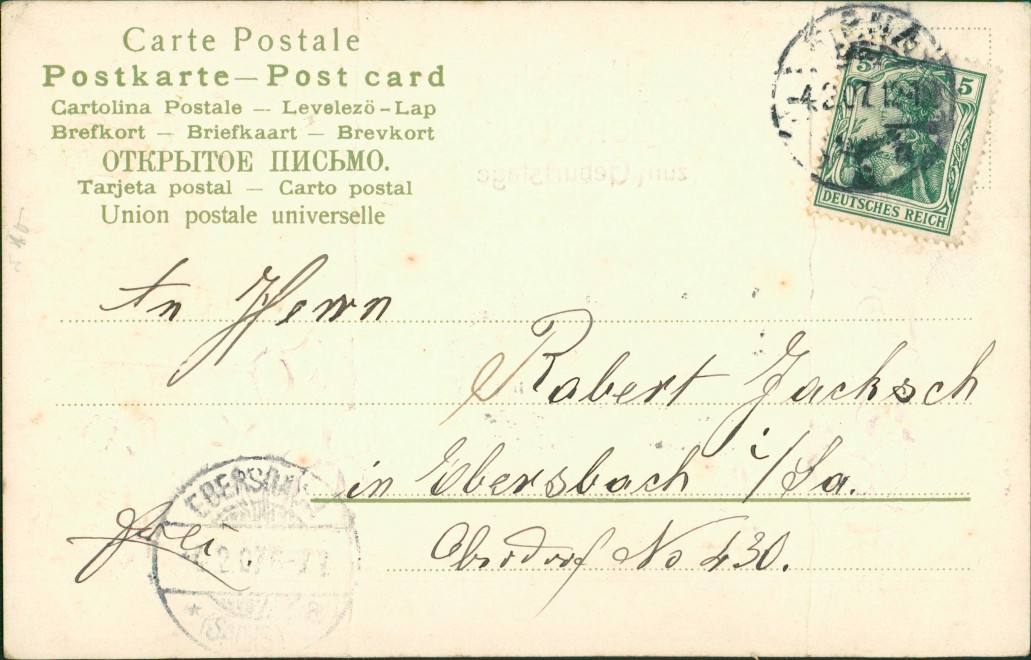 Carte Postale
Postkarte — Post card
Cartolina Postale — Levelezö-Lap
Brefkort — Briefkaart — Brevkort
ОТКРЫТОЕ ПИСЬМО.
Tarjeta postal — Carto postal
Union postale universelle
5 5
DEUTSCHES REICH
4.2.07
zum Geburtstage
An Herrn
Robert Jacksch
in Ebersbach i/Sa.
Oberdorf No 430.
frei.
EBERSBACH
2.07
(SACHS)